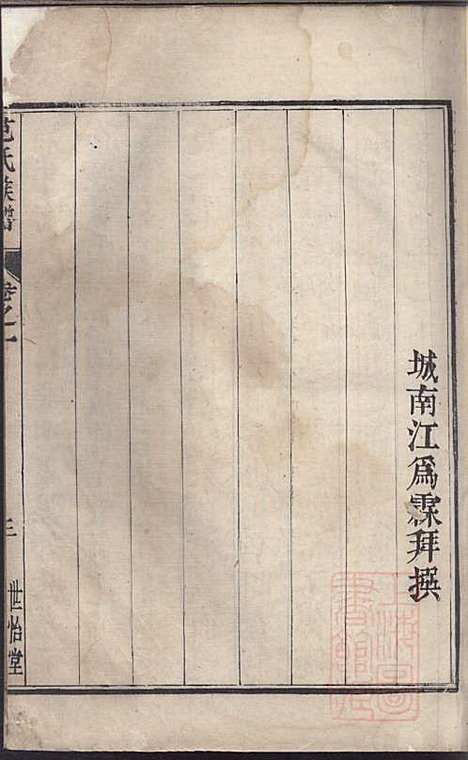 城南江爲霖拜撰
氏族譜
卷之一
三
世怡堂